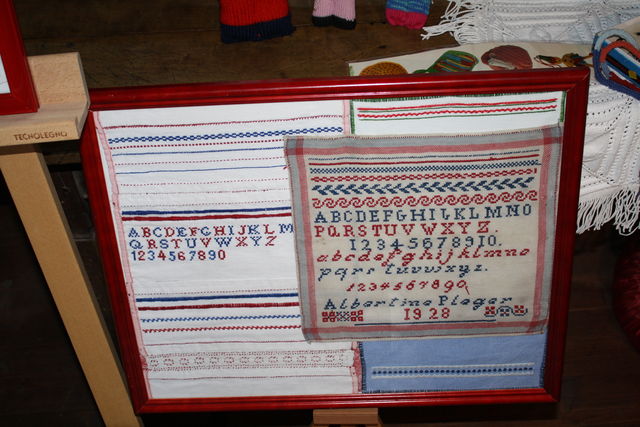 TECHOLEGNO
ABCDEFGHIJKLM
QRSTUVWXYZ
1234567890
ABCDEFGHILKLMNO
PQRSTUVWXYZ.
12345678910.
abcdefghijklmno
pqrstuvwxyz.
1234567890
Albertine Pleger
1928